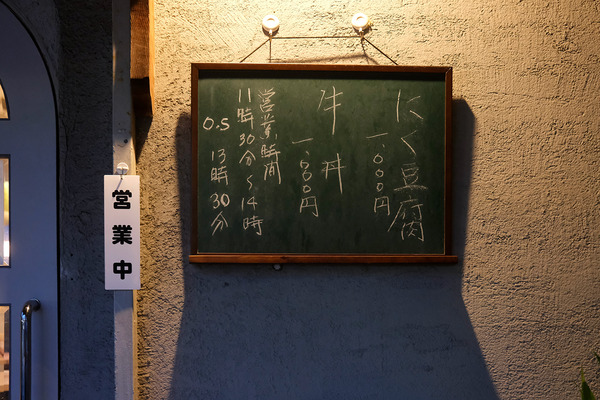 にく豆腐
一、000円
牛丼
一、000円
営業時間
11時30分〜14時
O.S 13時30分
営業中